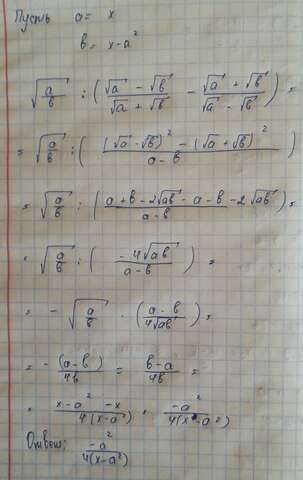 Пусть a = x
b = x - a²
√(a/b) : ( (√a - √b)/(√a + √b) - (√a + √b)/(√a - √b) ) =
= √(a/b) : ( ((√a - √b)² - (√a + √b)²)/(a - b) )
= √(a/b) : ( (a + b - 2√ab - a - b - 2√ab)/(a - b) )
= √(a/b) : ( (-4√ab)/(a - b) ) =
= - √(a/b) · ( (a - b)/(4√ab) ) =
= - (a - b)/(4b) = (b - a)/(4b) =
= (x - a² - x)/(4(x - a²)) = (-a²)/(4(x - a²))
Ответ: (-a²)/(4(x - a²))